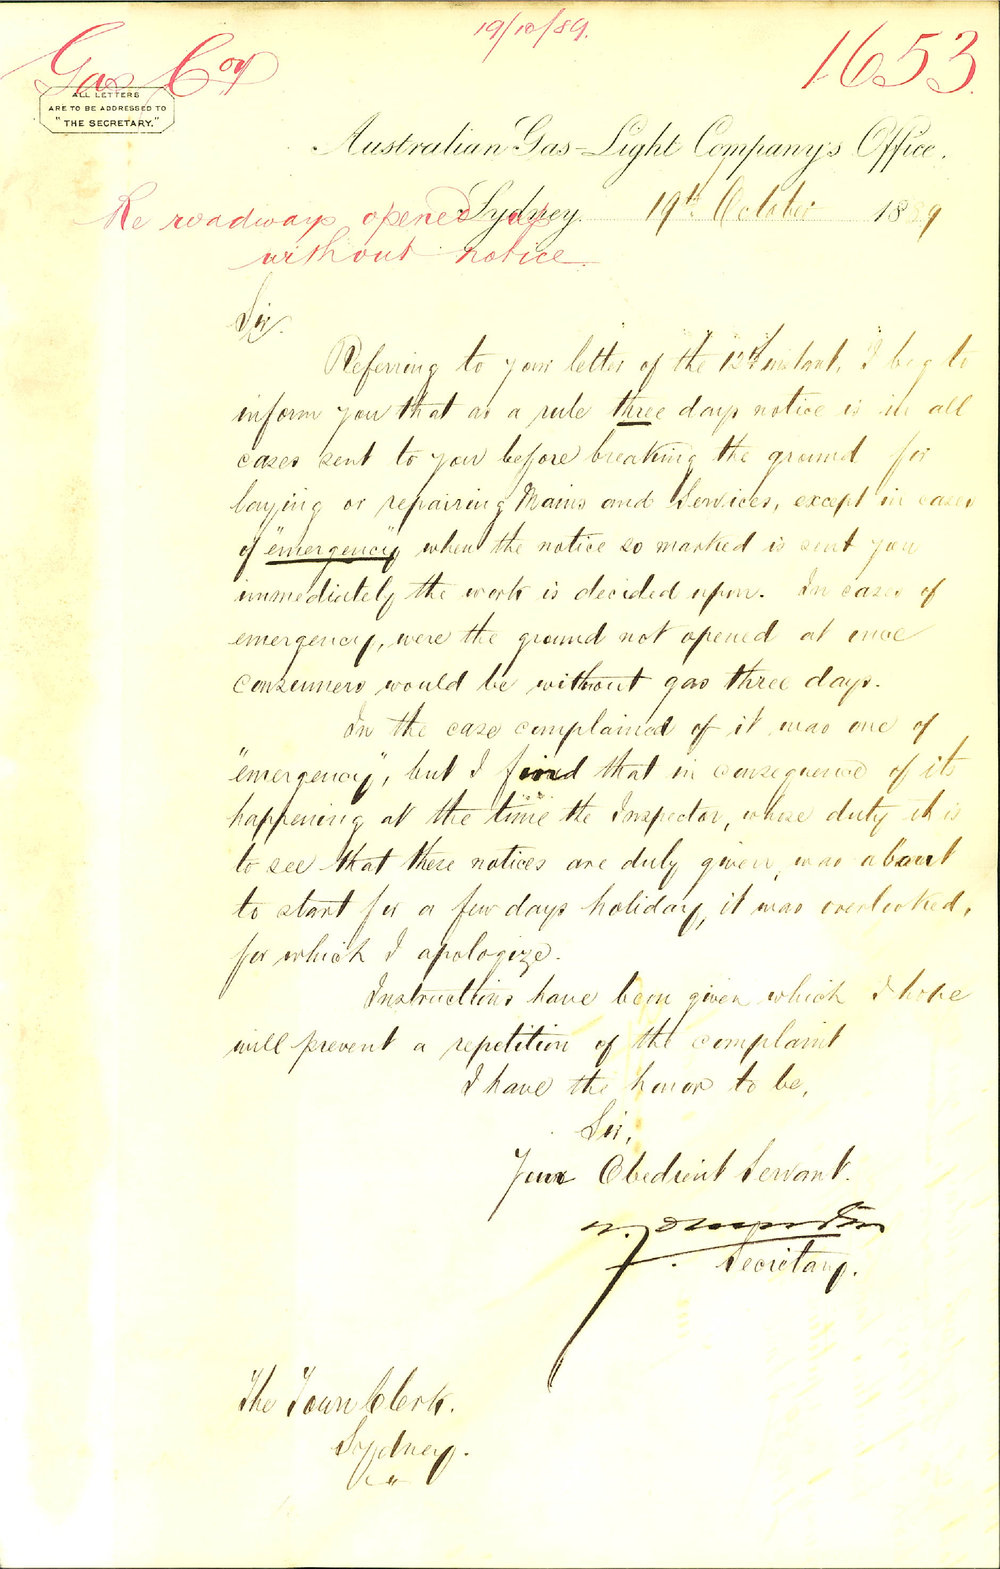 19/10/89.
Gas Coy
1653.
ALL LETTERS
ARE TO BE ADDRESSED TO
"THE SECRETARY."
Australian Gas-Light Company's Office.
Sydney. 19th October 1889
Re roadways opened up
without notice
Sir.
Referring to your letter of the 12th instant, I beg to
inform you that as a rule three days notice is in all
cases sent to you before breaking the ground for
laying or repairing Mains and Services, except in cases
of "emergency" when the notice so marked is sent you
immediately the work is decided upon. In cases of
emergency, were the ground not opened at once
consumers would be without gas three days.
In the case complained of it was one of
"emergency", but I find that in consequence of its
happening at the time the Inspector, whose duty it is
to see that these notices are duly given, was about
to start for a few days holiday, it was overlooked,
for which I apologize.
Instructions have been given which I hope
will prevent a repetition of the complaint
I have the honor to be,
Sir,
Your Obedient Servant.
Secretary.
The Town Clerk.
Sydney.